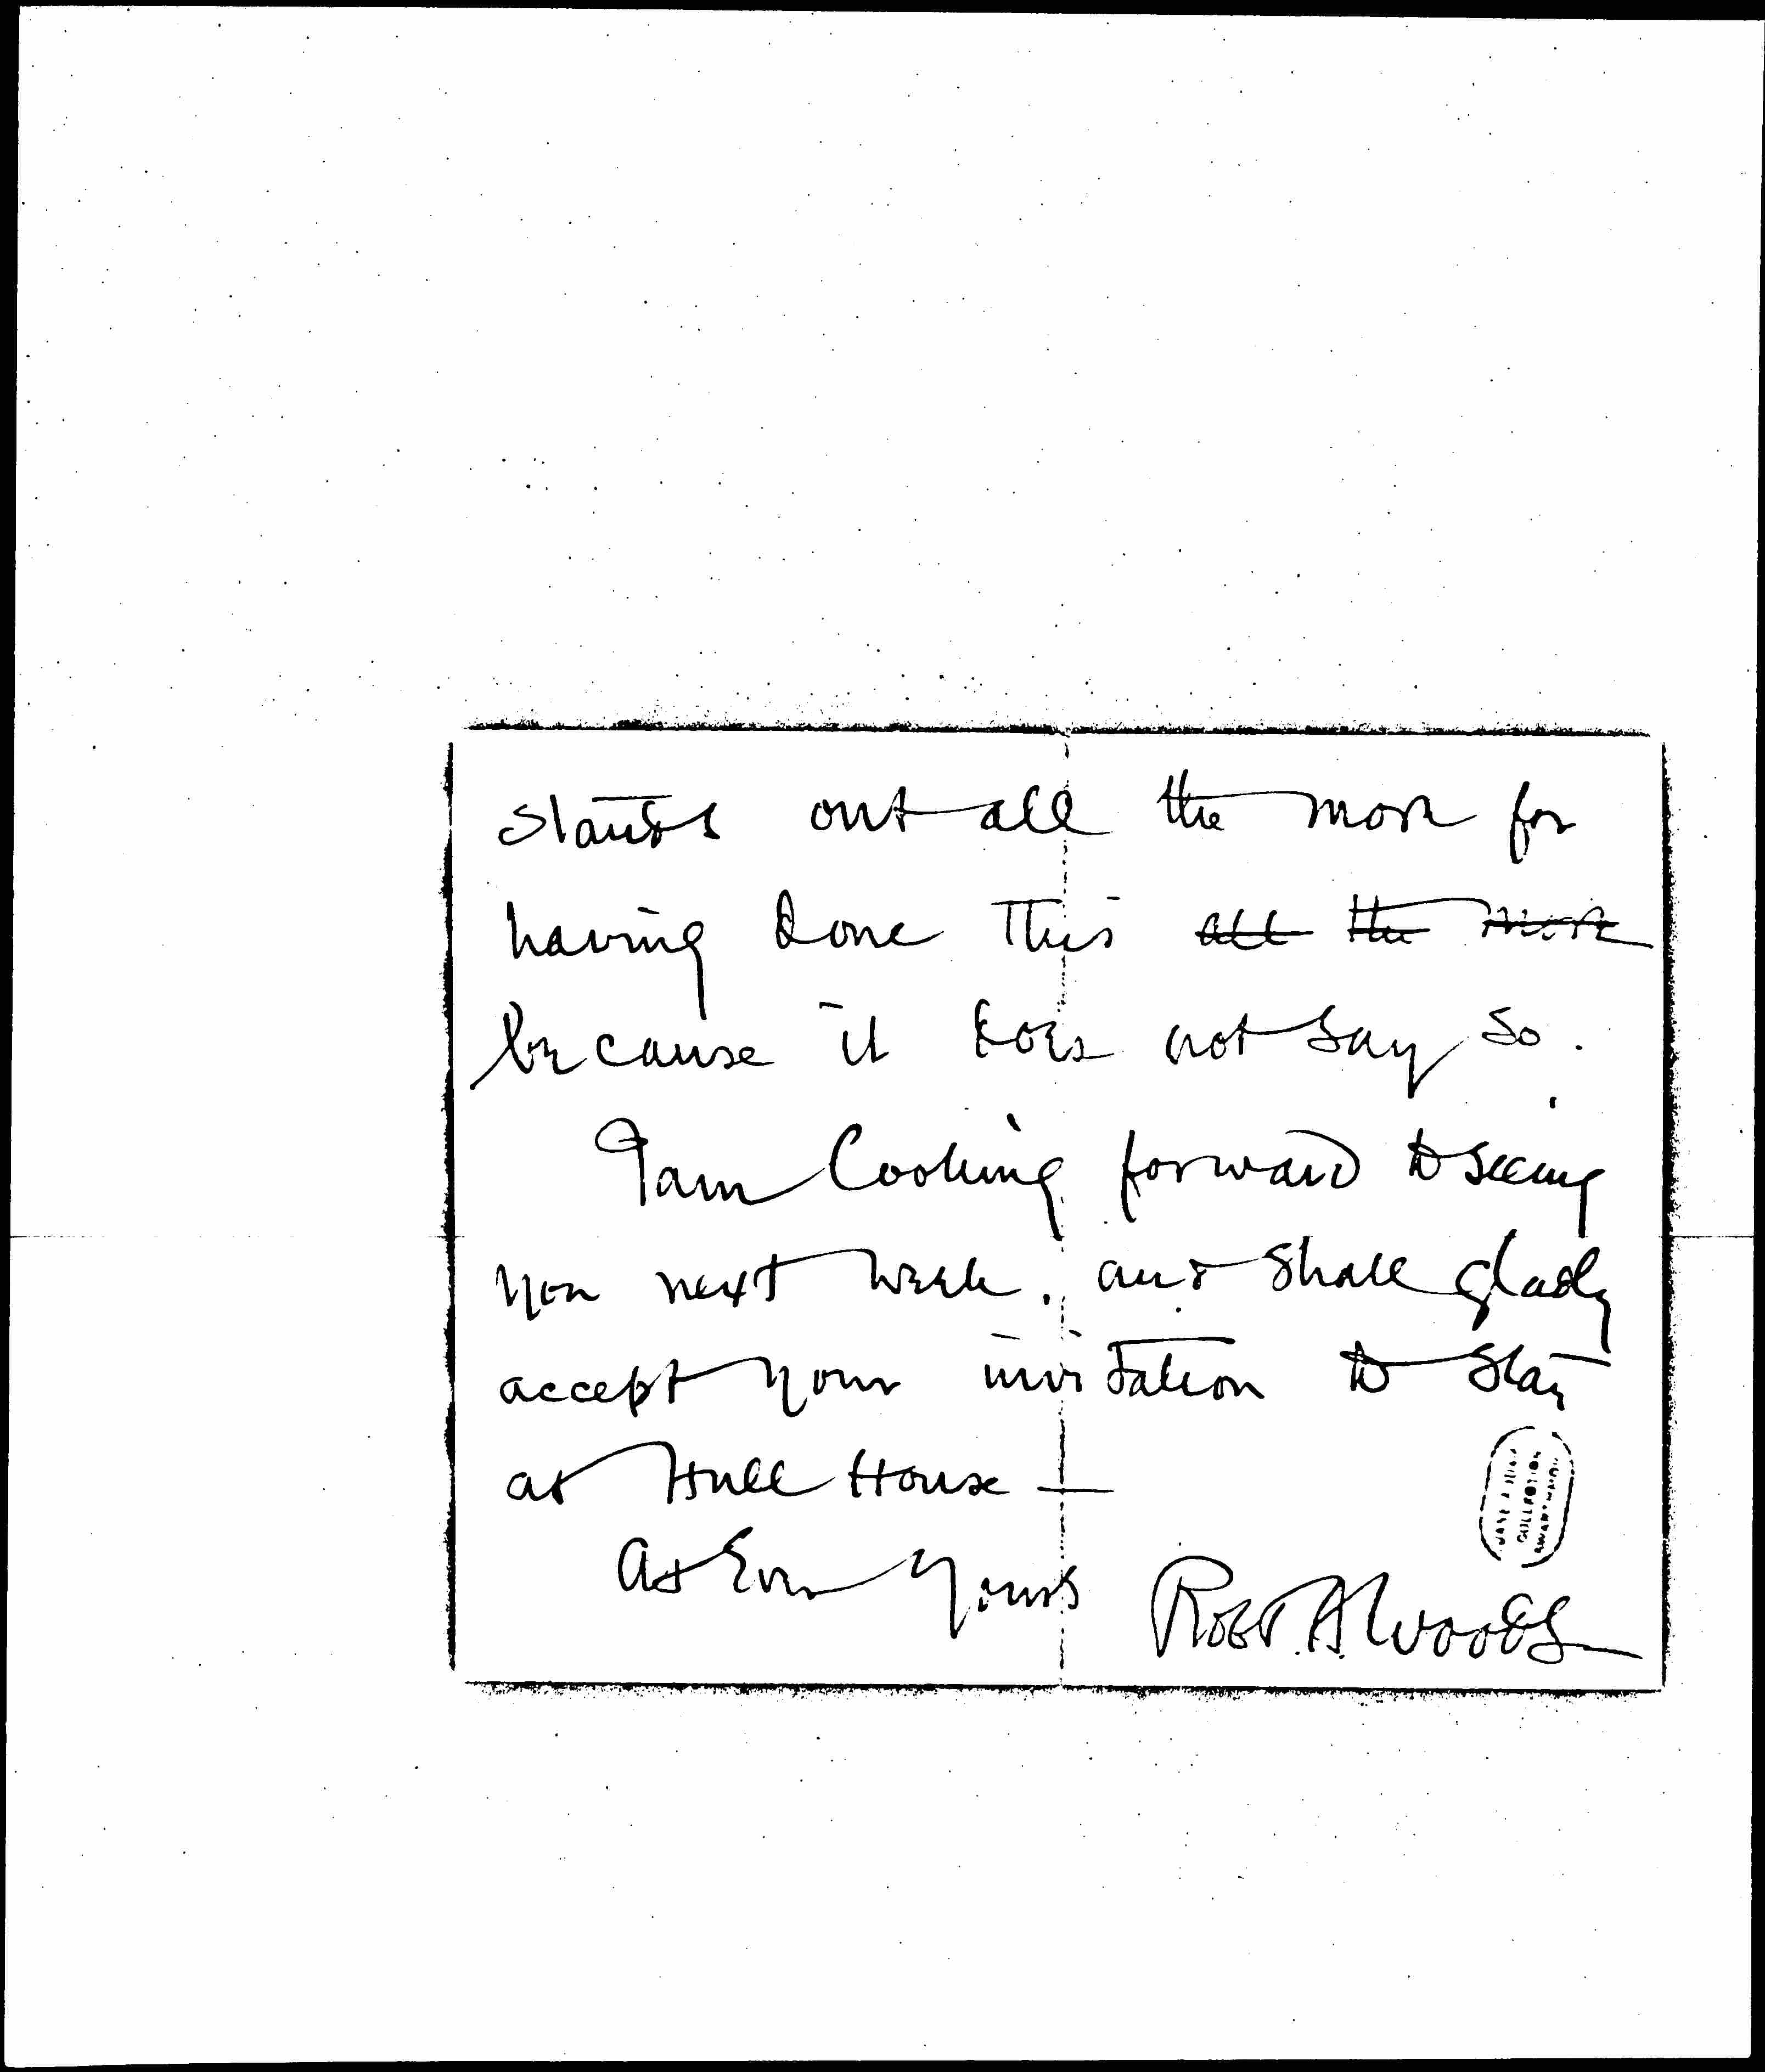 stands out all the more for
having done this all the more
because it does not say so.
I am looking forward to seeing
you next week, and shall gladly
accept your invitation to stay
at Hull House —
As Ever Yours Robt. A. Woods
JANE ADDAMS
COLLECTION
SWARTHMORE